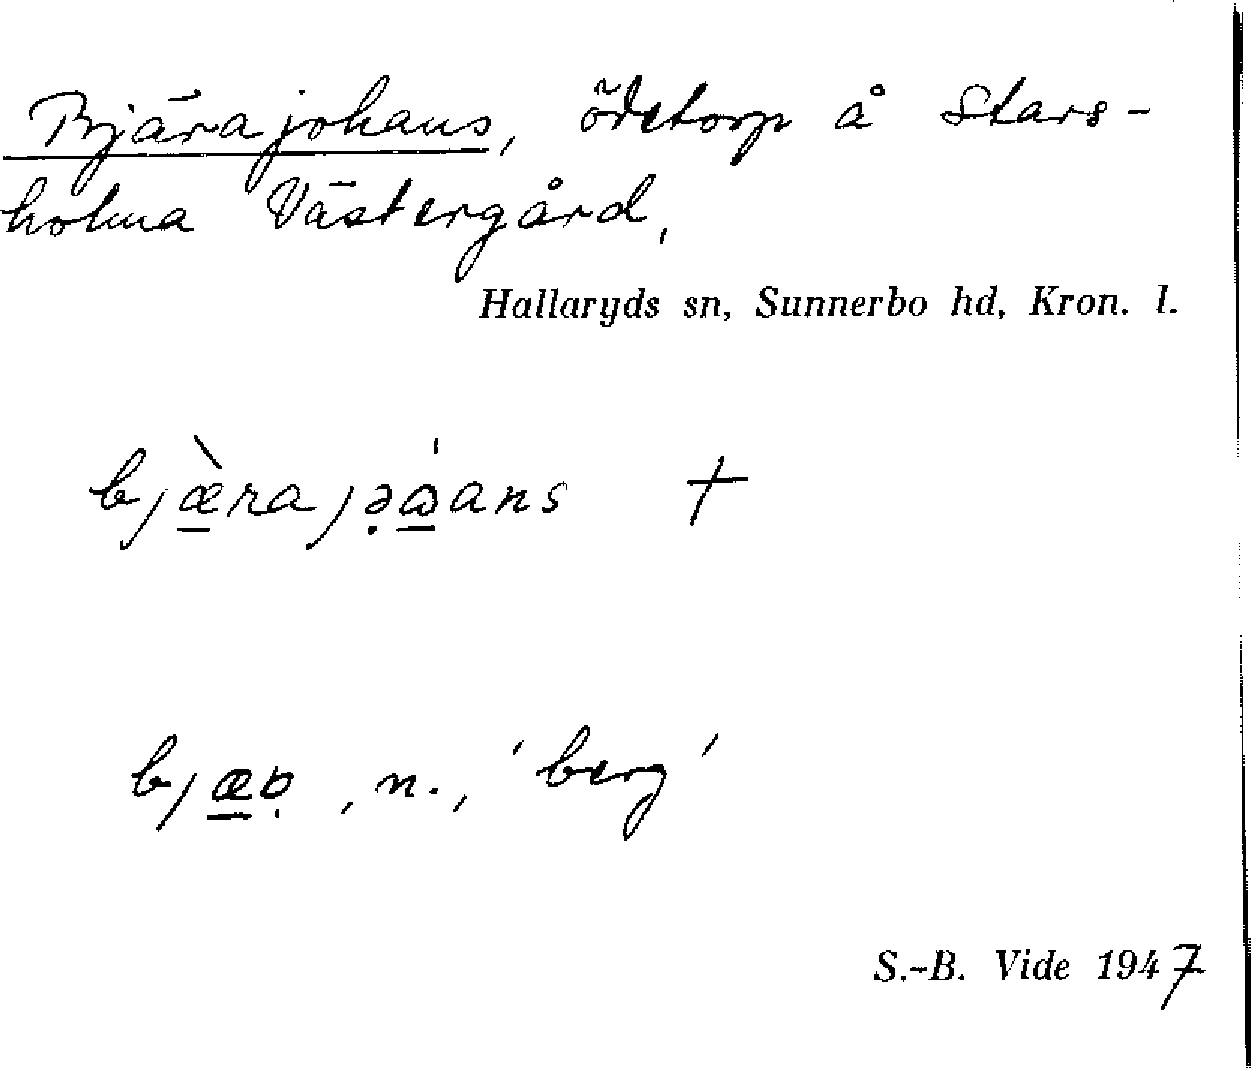 Bjärajohans, ödetorp å Stars-
holma Västergård,
Hallaryds sn, Sunnerbo hd, Kron. l.
bjæ̱̀rajə̣ꞷ̱́ans †
, n., 'berg'
S.-B. Vide 1947